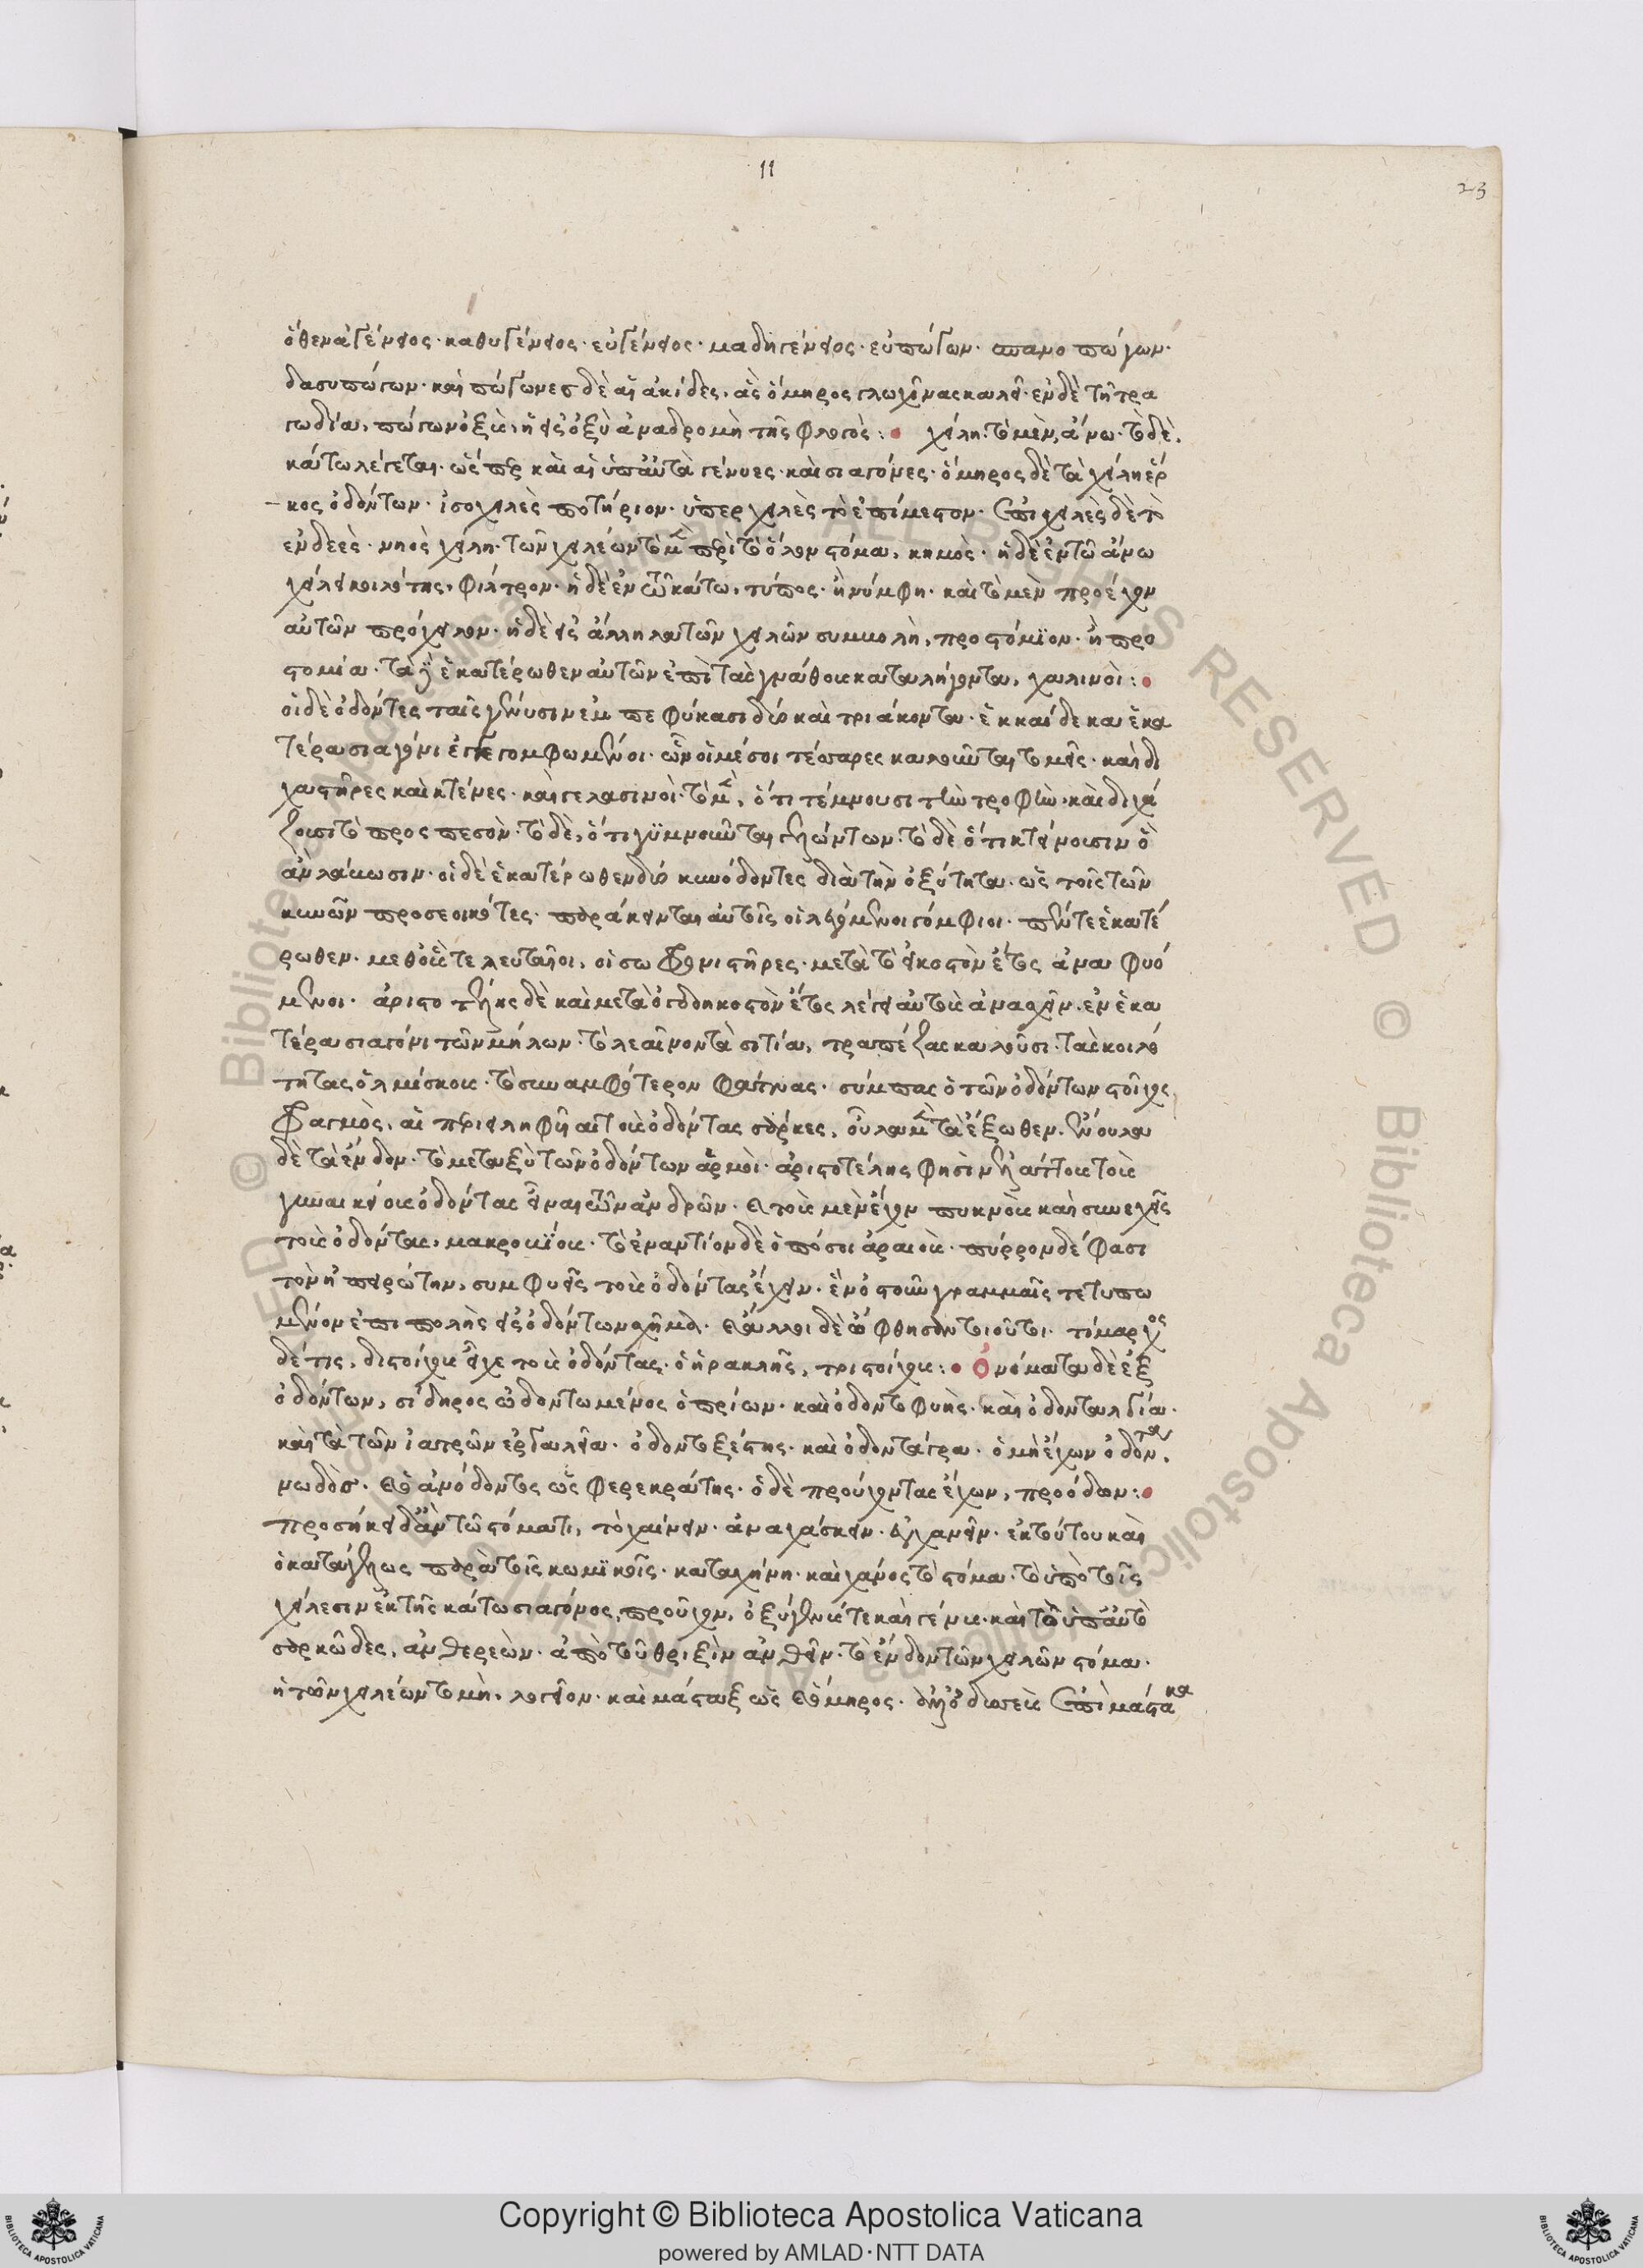 11
23
ὅθεν ἀγένειος· καθυγένειος· εὐγένειος· μαδηγένειος· εὐπώγων· σπανοπώγων·
δασυπώγων· καὶ πώγωνες δὲ αἱ ἀκίδες, ἃς ὅμηρος γλωχῖνας καλεῖ· ἐν δὲ τῆ τρα
γωδία, πώγων ὀξὺς, ἡ εἰς ὀξὺ ἀναδρομὴ τῆς φλογός: χείλη· τὸ μὲν, ἄνω· τὸ δὲ,
κάτω λέγεται· ὥσπερ καὶ αἱ ὑπ' αὐτὰ γένυες· καὶ σιαγόνες· ὅμηρος δὲ τὰ χείλη ἕρ
κος ὀδόντων· ἰσοχειλὲς ποτήριον· ὑπερχειλὲς τὸ ἐπίμεστον· ἐπιχειλὲς δὲ τὸ
ἐνδεές· νηὸς χείλη· τῶν χειλέων τὸ μὲν περὶ τὸ ὅλον στόμα, κημός· ἡ δὲ ἐν τῶ ἄνω
χείλει κοιλότης, φίλτρον· ἡ δὲ ἐν τῶ κάτω, τύπος· ἢ νύμφη· καὶ τὸ μὲν προέχον
αὐτῶν πρόχειλον· ἡ δὲ εἰς ἄλληλα τῶν χειλῶν συμβολὴ, προστόμϊον· ἢ προ
στομία· τὰ δὲ ἑκατέρωθεν αὐτῶν ἐπὶ τὰς γνάθους καταλήγοντα, χαλινοὶ:
οἱ δὲ ὀδόντες ταῖς γένυσιν ἐμπεφύκασι δύο καὶ τριάκοντα· ἑκκαίδεκα ἑκα
τέρα σιαγόνι ἐγγεγομφωμένοι· ὧν οἱ μέσοι τέσσαρες καλοῦνται τομεῖς· καὶ δι
χαστῆρες καὶ κτένες· καὶ γελασινοὶ· τὸ μὲν, ὅτι τέμνουσι τὴν τροφὴν· καὶ διχά
ζουσι τὸ προσπεσὸν· τὸ δὲ, ὅτι γϋμνοῦνται γελώντων· τὸ δὲ ὅτι κτείνουσιν ὃ
ἂν λάκωσιν· οἱ δὲ ἑκατέρωθεν δύο κυνόδοντες διὰ τὴν ὀξύτητα· ὡς τοῖς τῶν
κυνῶν προσεοικότες· παράκεινται αὐτοῖς οἱ λεγόμενοι γόμφιοι· πέντε ἑκατέ
ρωθεν· μεθ' οὓς τελευταῖοι, οἱ σωφρονιστῆρες· μετὰ τὸ εἰκοστὸν ἔτος ἀναφυό
μενοι· ἀριστοτέλης δὲ καὶ μετὰ ὀγδοηκοστὸν ἔτος λέγει αὐτοὺς ἀνασχεῖν· ἐν ἑκα
τέρα σιαγόνι τῶν μήλων· τὸ λεαῖνον τὰ σιτία, τραπέζας καλοῦσι· τὰς κοιλό
τητας ὁλμίσκους· τὸ συναμφότερον φάτνας· σύμπας ὁ τῶν ὀδόντων στοῖχος
φραγμὸς, αἱ περιειληφυῖαι τοὺς ὀδόντας σάρκες, οὖλα μὲν τὰ ἔξωθεν· ἔνουλα
δὲ τὰ ἔνδον· τὸ μεταξὺ τῶν ὀδόντων ἁρμοὶ· ἀριστοτέλης φησὶν ἐλάττους τοὺς
γυναικείους ὀδόντας εἶναι τῶν ἀνδρῶν· καὶ τοὺς μὲν ἔχειν πυκνοὺς καὶ συνεχεῖς
τοὺς ὀδόντας, μακροβϊους· τὸ ἐναντίον δὲ ὁπόσοι ἀραιοὺς· πύρρον δέ φασι
τὸν ἠπειρώτην, συμφυεῖς τοὺς ὀδόντας ἔχειν· ἓν ὀστοῦν γραμμαῖς τετυπω
μένον ἐπιπολῆς εἰς ὀδόντων σχῆμα· καὶ ἄλλοι δὲ ὤφθησαν τοιοῦτοι· τίμαρχος
δέ τις, διστοίχους εἶχε τοὺς ὀδόντας· ὁ ἡρακλῆς, τριστοίχους: Ὀνόματα δὲ ἐξ
ὀδόντων, σίδηρος ὠδοντωμένος ὁ πρίων· καὶ ὀδοντοφυὴς· καὶ ὀδονταλγία·
καὶ τὰ τῶν ἰατρῶν ἐργαλεῖα· ὀδοντοξέστης· καὶ ὀδοντάγρα· ὁ μὴ ἔχων ὀδόντα,
νωδὸς· καὶ ἀνόδοντος ὡς φερεκράτης· ὁ δὲ προύχοντας ἔχων, προόδων:
προσήκει δ' ἂν τῶ στόματι, τὸ χαίνειν· ἀναχάσκειν· ἐγχανεῖν· ἐκ τούτου καὶ
ὁ κατάγελως παρὰ τοῖς κωμϊκοῖς· καταχήνη· καὶ χάνος τὸ στόμα· τὸ ὑπὸ τοῖς
χείλεσιν ἐκ τῆς κάτω σιαγόνος, προῦχον, ὀξυγένυς τε καὶ γένυς· καὶ τὸ ὑπ' αὐτὸ
σαρκῶδες, ἀνθερεὼν· ἀπὸ τοῦ θριξὶν ἀνθεῖν· τὸ ἔνδον τῶν χειλῶν στόμα·
ἡ τῶν χειλέων τομὴ, λογεῖον· καὶ μάσταξ ὡς καὶ ὅμηρος· ἀλλ' ὀδυσεὺς ἐπὶ μάστακα